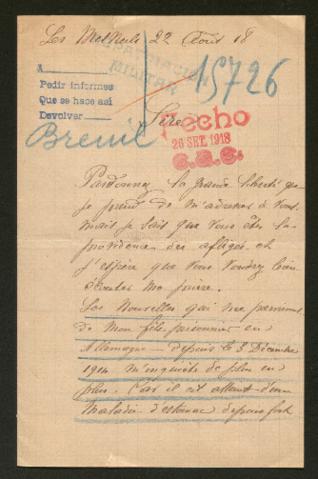 Les 22 Août 18
INFORMACION
MILITAR
15726
A
Pedir informes
Que se hace así
Devolver
Breuil
Sire
Hecho
26 SET. 1918
Pardonnez la grande liberté que
je prend de m'adresser à vous
mais je sais que vous êtes la
providence des afligés et
j'espère que vous voudrez bien
écouter ma prière.
Les nouvelles qui me parviennent
de mon fils prisonnier en
Allemagne depuis le 3 Décembre
1914 m'inquiète de plus en
plus. Car il est atteint d'une
maladie d'estomac depuis fort